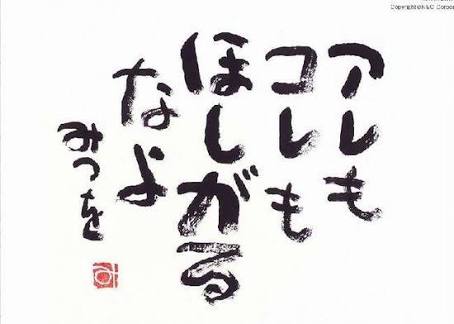 アレも
コレも
ほしがる
なよ
みつを
Copyright©N&C Corpor